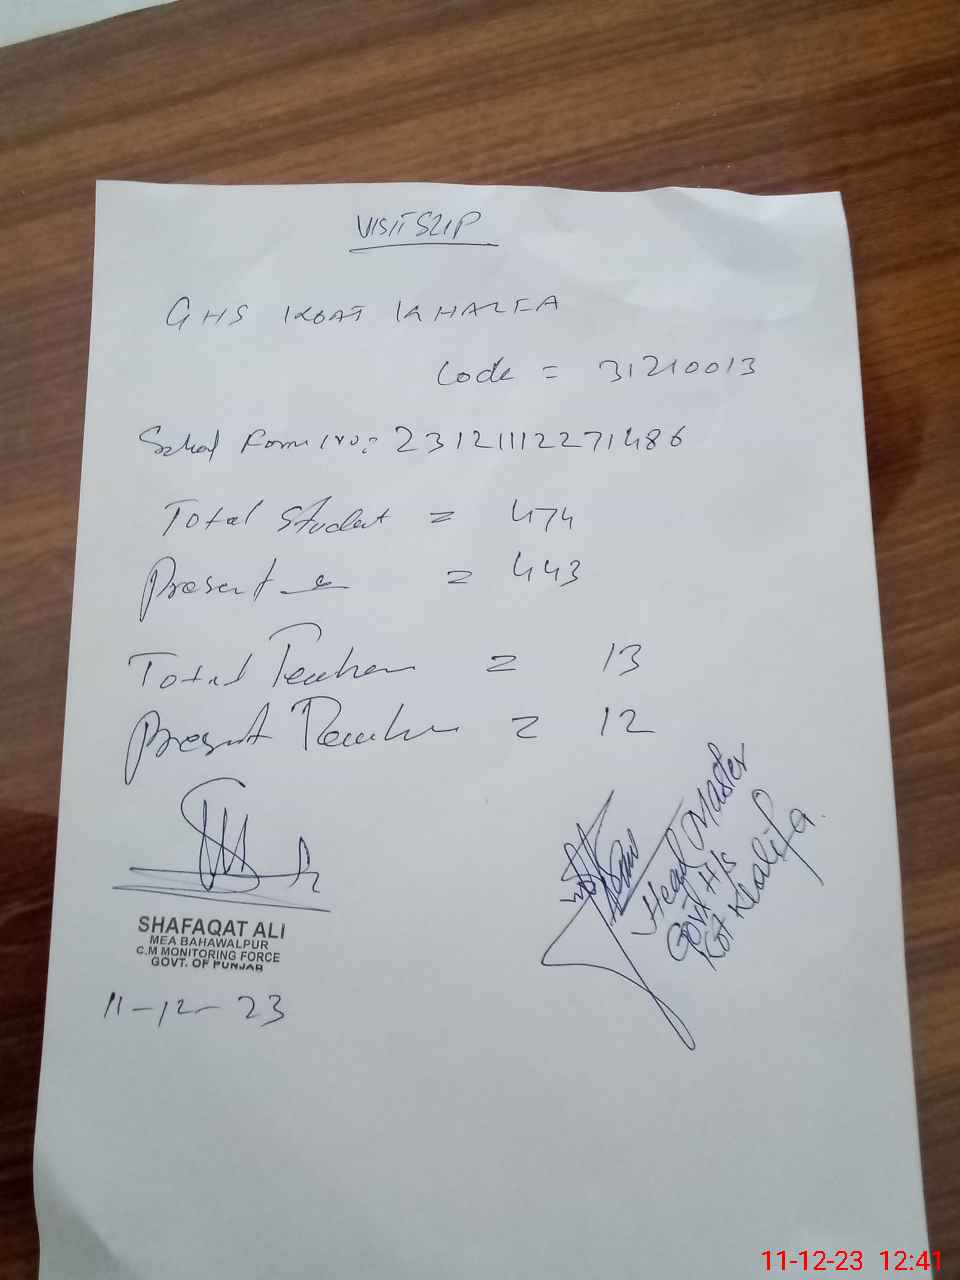 VISIT SLIP
GHS KOAT KHALFA
Code = 31210013
School Form No: 23121112271486
Total Student = 474
Present = 443
Total Teacher = 13
Present Teacher = 12
SHAFAQAT ALI
MEA BAHAWALPUR
C.M MONITORING FORCE
GOVT. OF PUNJAB
11-12-23
Head Master
Govt H/S
Kot Khalifa.
11-12-23 12:41